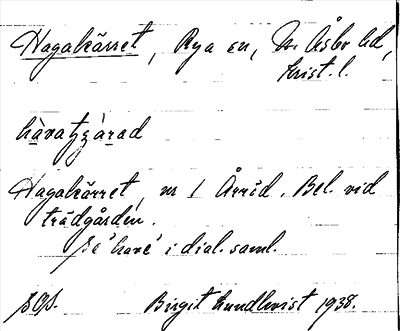 Hagakärret, Rya sn, N. Åsbo hd,
Krist. l.
hàvatʒʒàrad
Hagakärret, nr 1 Årröd. Bel. vid
trädgården.
se 'have' i dial. saml.
SOS. Birgit Lundkvist 1938.